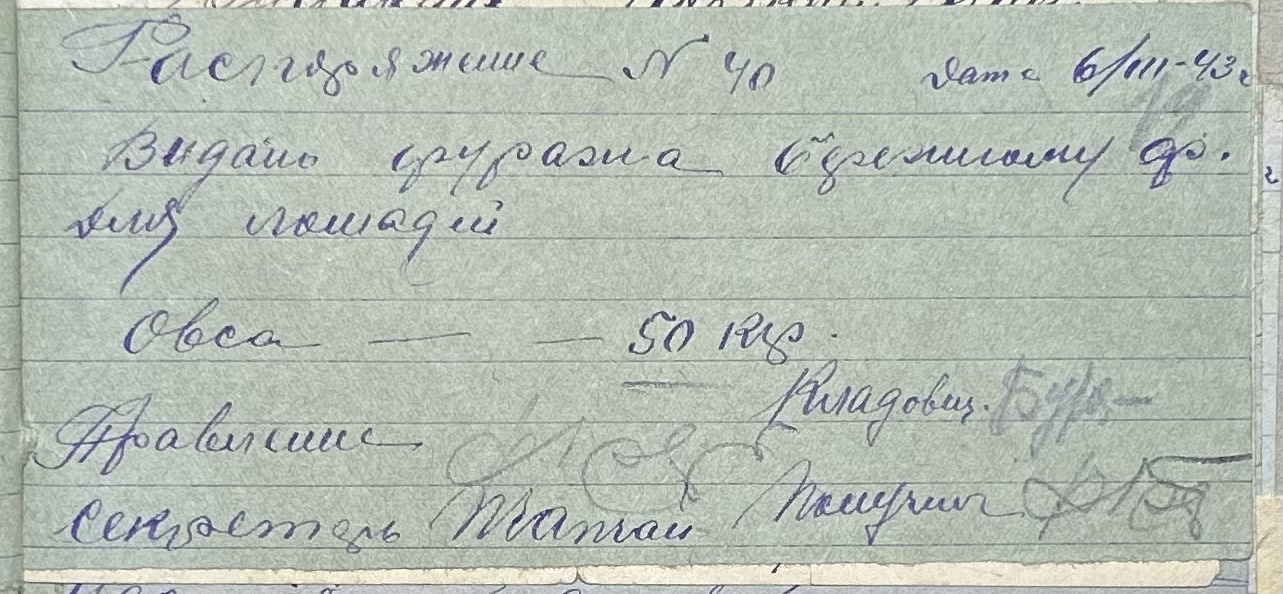 Распоряжение N 40 Дата 6/III-43г
Видать фуража фр.
для лошадей
Овса — — 50 кгр.
Кладовщ.
Правление
секретарь Получил